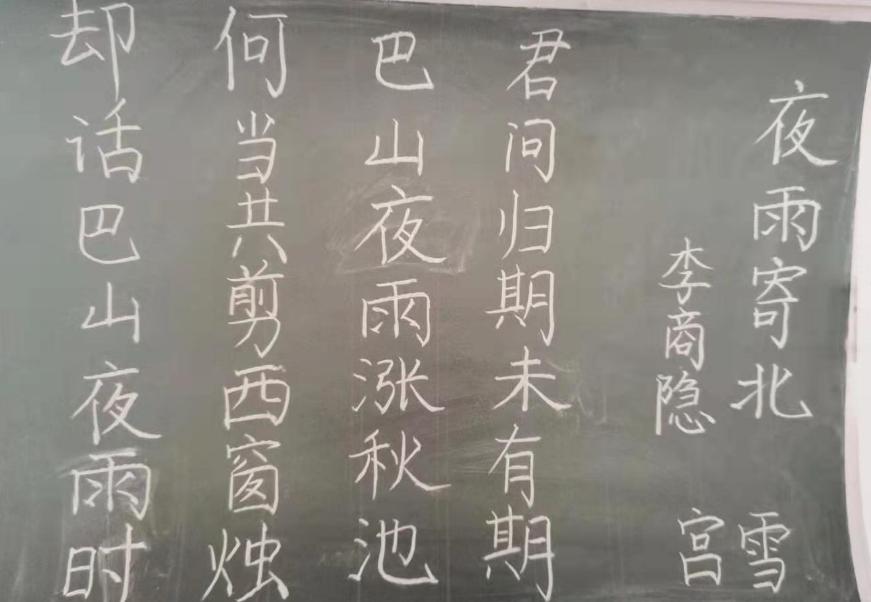 夜雨寄北
李商隐
君问归期未有期
巴山夜雨涨秋池
何当共剪西窗烛
却话巴山夜雨时
宫雪